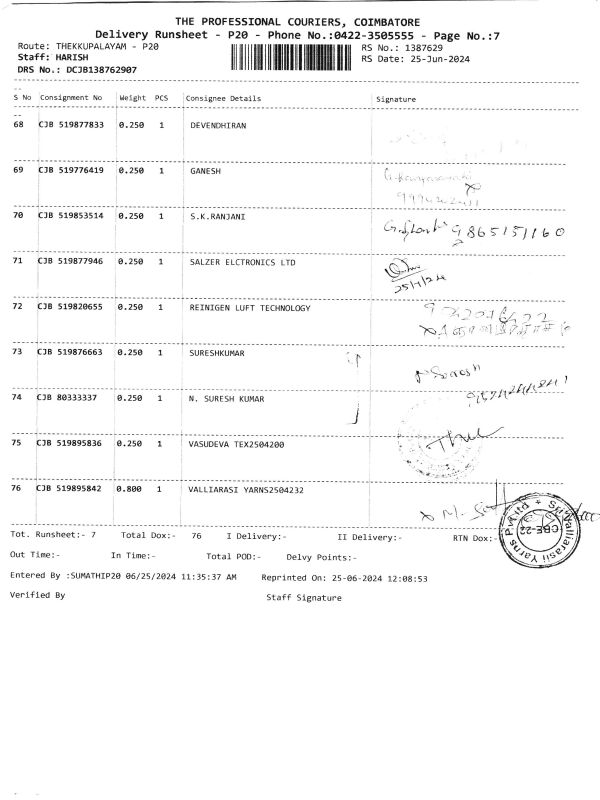 THE PROFESSIONAL COURIERS, COIMBATORE
Delivery Runsheet - P20 - Phone No.:0422-3505555 - Page No.:7
Route: THEKKUPALAYAM - P20 RS No.: 1387629
Staff: HARISH RS Date: 25-Jun-2024
DRS No.: DCJB138762907
S No Consignment No Weight PCS Consignee Details Signature
68 CJB 519877833 0.250 1 DEVENDHIRAN
69 CJB 519776419 0.250 1 GANESH
70 CJB 519853514 0.250 1 S.K.RANJANI 9865151160
71 CJB 519877946 0.250 1 SALZER ELCTRONICS LTD
72 CJB 519820655 0.250 1 REINIGEN LUFT TECHNOLOGY
73 CJB 519876663 0.250 1 SURESHKUMAR Suresh
74 CJB 80333337 0.250 1 N. SURESH KUMAR
75 CJB 519895836 0.250 1 VASUDEVA TEX2504200
76 CJB 519895842 0.800 1 VALLIARASI YARNS2504232
Tot. Runsheet:- 7 Total Dox:- 76 I Delivery:- II Delivery:- RTN Dox:-
Out Time:- In Time:- Total POD:- Delvy Points:-
Entered By :SUMATHIP20 06/25/2024 11:35:37 AM Reprinted On: 25-06-2024 12:08:53
Verified By Staff Signature